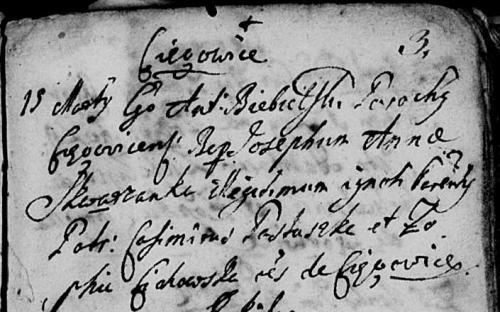 Cięgowice 3.
15 Marty Ego Ant: Biebielski Parochg
Cięgovicens: Bap: Josephum Annæ
Skwarzanka Illegitimum ignoti Parentis
Patr: Casimirus Pastuszke et Zo
phia Cichowska oēs de Cięgovice.